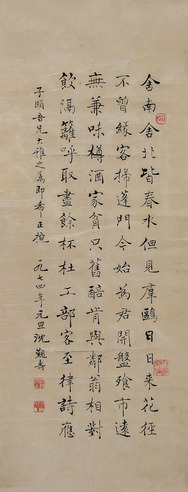 舍南舍北皆春水但見羣鷗日日來花徑
不曾緣客掃蓬門今始為君開盤飧市遠
無兼味樽酒家貧只舊醅肯與鄰翁相對
飲隔籬呼取盡餘杯杜工部客至律詩應
子頤吾兄大雅之屬即希正捥 一九七四年元旦沈覲壽